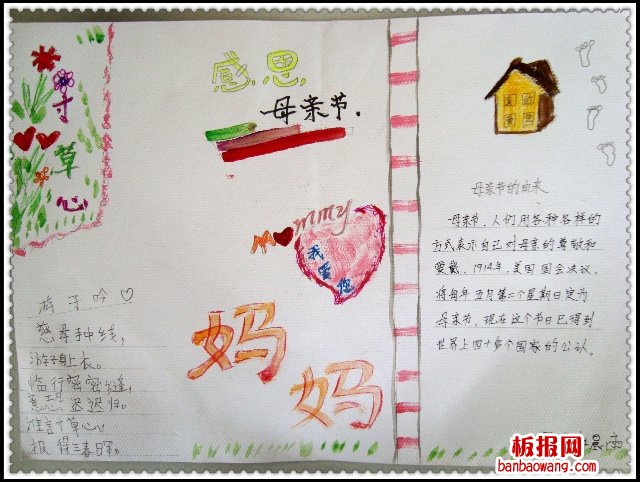 寸
草
心
感恩
母亲节.
mommy
我爱您
妈
妈
游子吟
慈母手中线,
游子身上衣。
临行密密缝,
意恐迟迟归。
谁言寸草心,
报得三春晖。
母亲节的由来
母亲节,人们用各种各样的
方式表示自己对母亲的尊敬和
爱戴,1914年,美国国会决议,
将每年五月第二个星期日定为
母亲节,现在这个节日已得到
世界上四十多个国家的公认。
晨雨
板报网
banbaowang.com